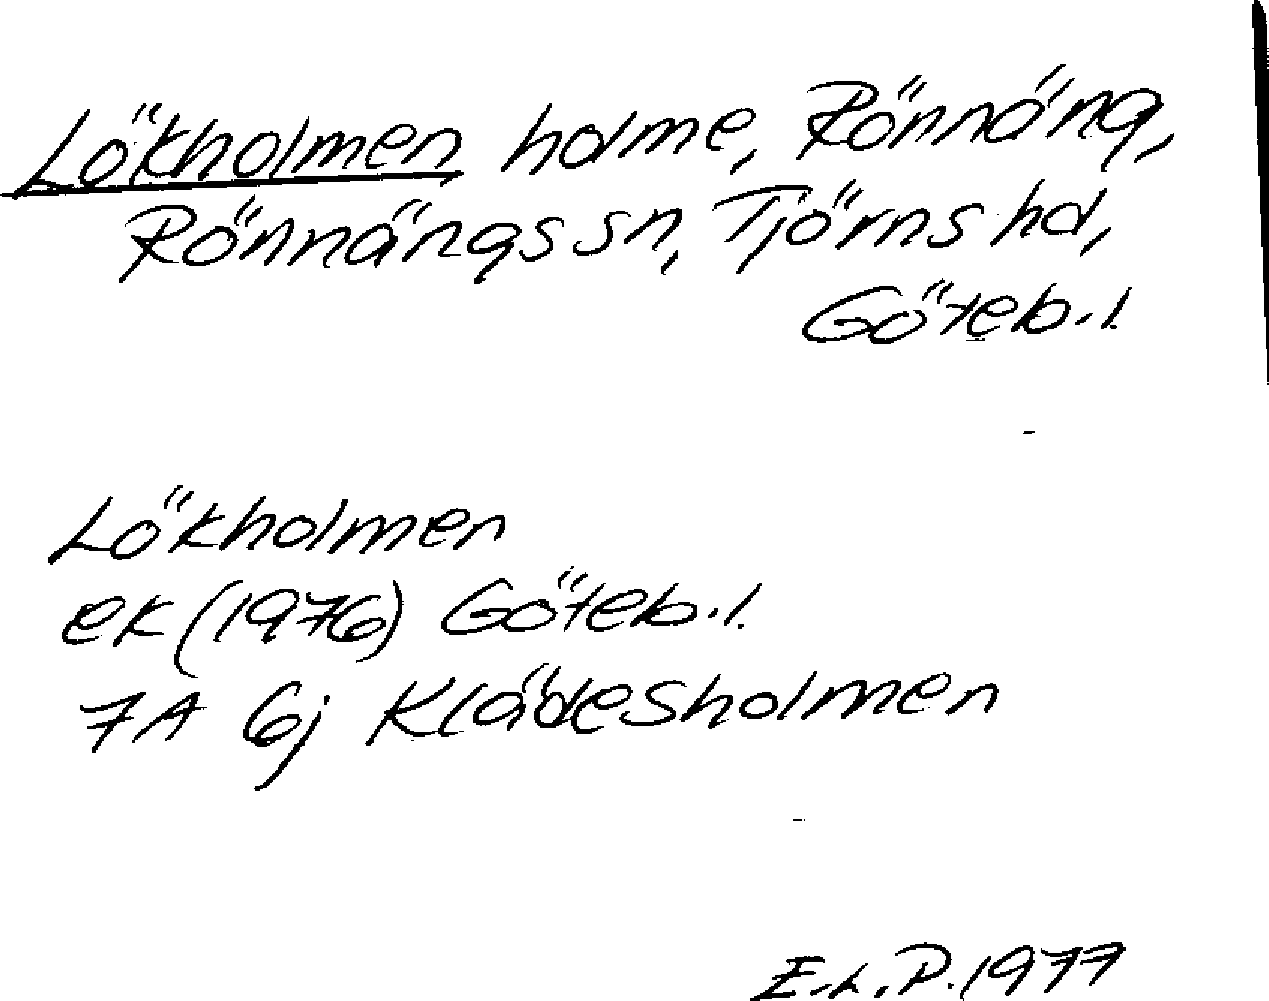 Lökholmen holme, Rönnäng,
Rönnängs sn, Tjörns hd,
Göteb. l.
Lökholmen
ek (1976) Göteb. l.
7A 6j Klädesholmen
E.L.P. 1977